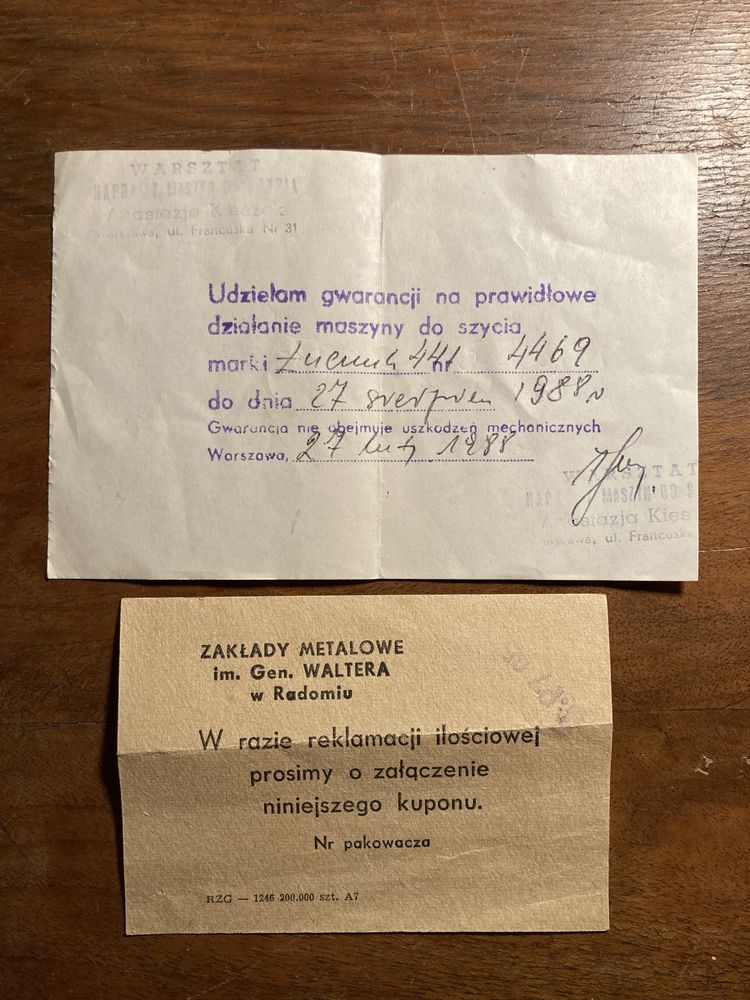 WARSZTAT
NAPRAWY MASZYN DO SZYCIA
Anastazja
Warszawa, ul. Francuska Nr 31
Udzielam gwarancji na prawidłowe
działanie maszyny do szycia
marki Łucznik 441 nr 4469
do dnia 27 sierpień 1988 r
Gwarancja nie obejmuje uszkodzeń mechanicznych
Warszawa, 27 luty 1988
WARSZTAT
NAP MASZYN DO S
Anastazja Kies
Warszawa, ul. Francuska
ZAKŁADY METALOWE
im. Gen. WALTERA
w Radomiu
W razie reklamacji ilościowej
prosimy o załączenie
niniejszego kuponu.
Nr pakowacza
RZG — 1246 200.000 szt. A7